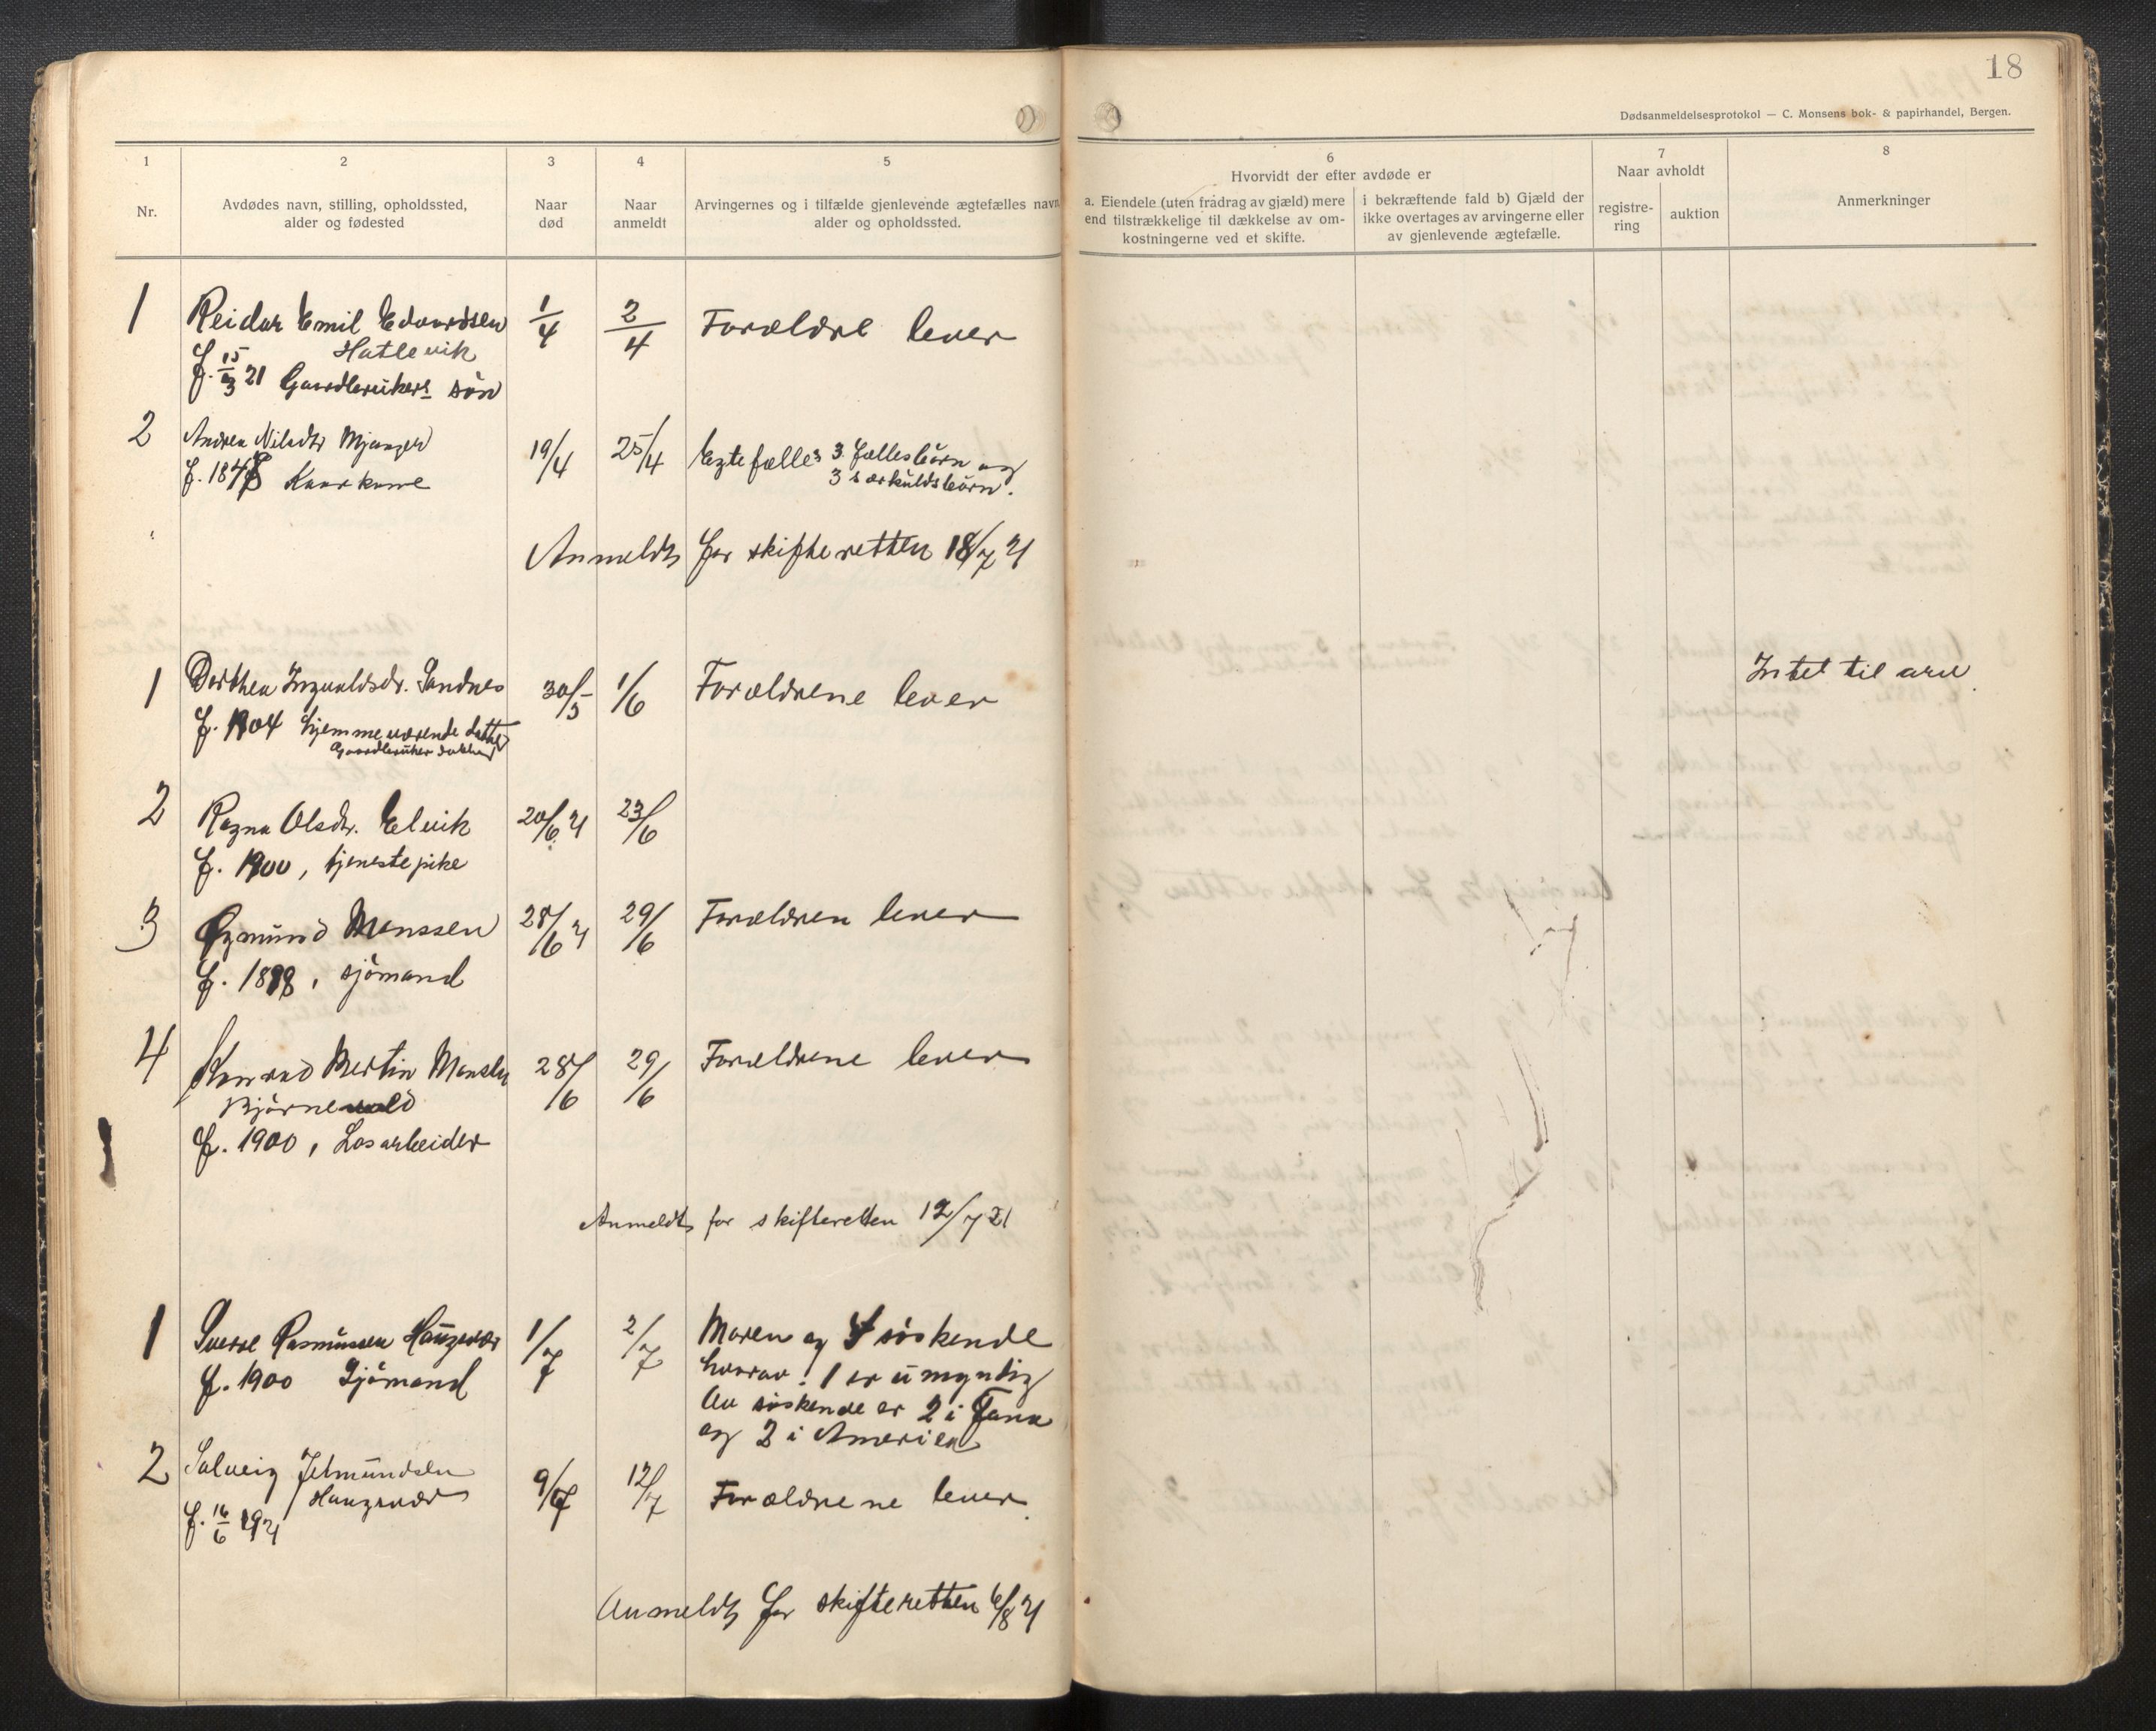 18
Dødsanmeldelsesprotokol — C. Monsens bok- & papirhandel, Bergen.
1
Nr.
2
Avdødes navn, stilling, opholdssted,
alder og fødested
3
Naar
død
4
Naar
anmeldt
5
Arvingernes og i tilfælde gjenlevende ægtefælles navn
alder og opholdssted.
6
Hvorvidt der efter avdøde er
a. Eiendele (uten fradrag av gjæld) mere
end tilstrækkelige til dækkelse av om-
kostningerne ved et skifte.
i bekræftende fald b) Gjæld der
ikke overtages av arvingerne eller
av gjenlevende ægtefælle.
7
Naar avholdt
registre-
ring
auktion
8
Anmerkninger
1 Reidar Emil Edvardsen 1/4 2/4 Forældre lever
Hatlevik
f. 15/3 21 Gaardbrukers søn
2 Andrea Nilsdtr Mjanger 19/4 25/4 Egtefælle, 3 fællesbørn og
f. 1848 Kaarkone 3 særkuldsbørn.
Anmeldt for skifteretten 18/7 21
1 Dorthea Ingvaldsdr. Sandnes 30/5 1/6 Forældrene lever Intet til arv.
f. 1904 hjemmeværende datter
Gaardbruker datter
2 Ragna Olsdr. Elvik 20/6 21 23/6
f. 1900, tjenestepike
3 Ogmund Monssen 28/6 21 29/6 Forældren lever
f. 1898, sjömand
4 Konrad Martin Monsen 28/6 29/6 Forældrene lever
f. 1900, Løsarbeider
Anmeldt for skifteretten 12/7 21
1 Sverre Rasmussen Haugsvær 1/7 2/7 Moren og 4 søskende
f. 1900 Sjömand hvorav 1 er umyndig
Av søskende er 2 i
og 2 i Amerika
2 Solveig Jetmundsen 9/7 12/7 Forældrene lever.
Haugsvær
f. 16/6 1921
Anmeldt for skifteretten 6/8 21